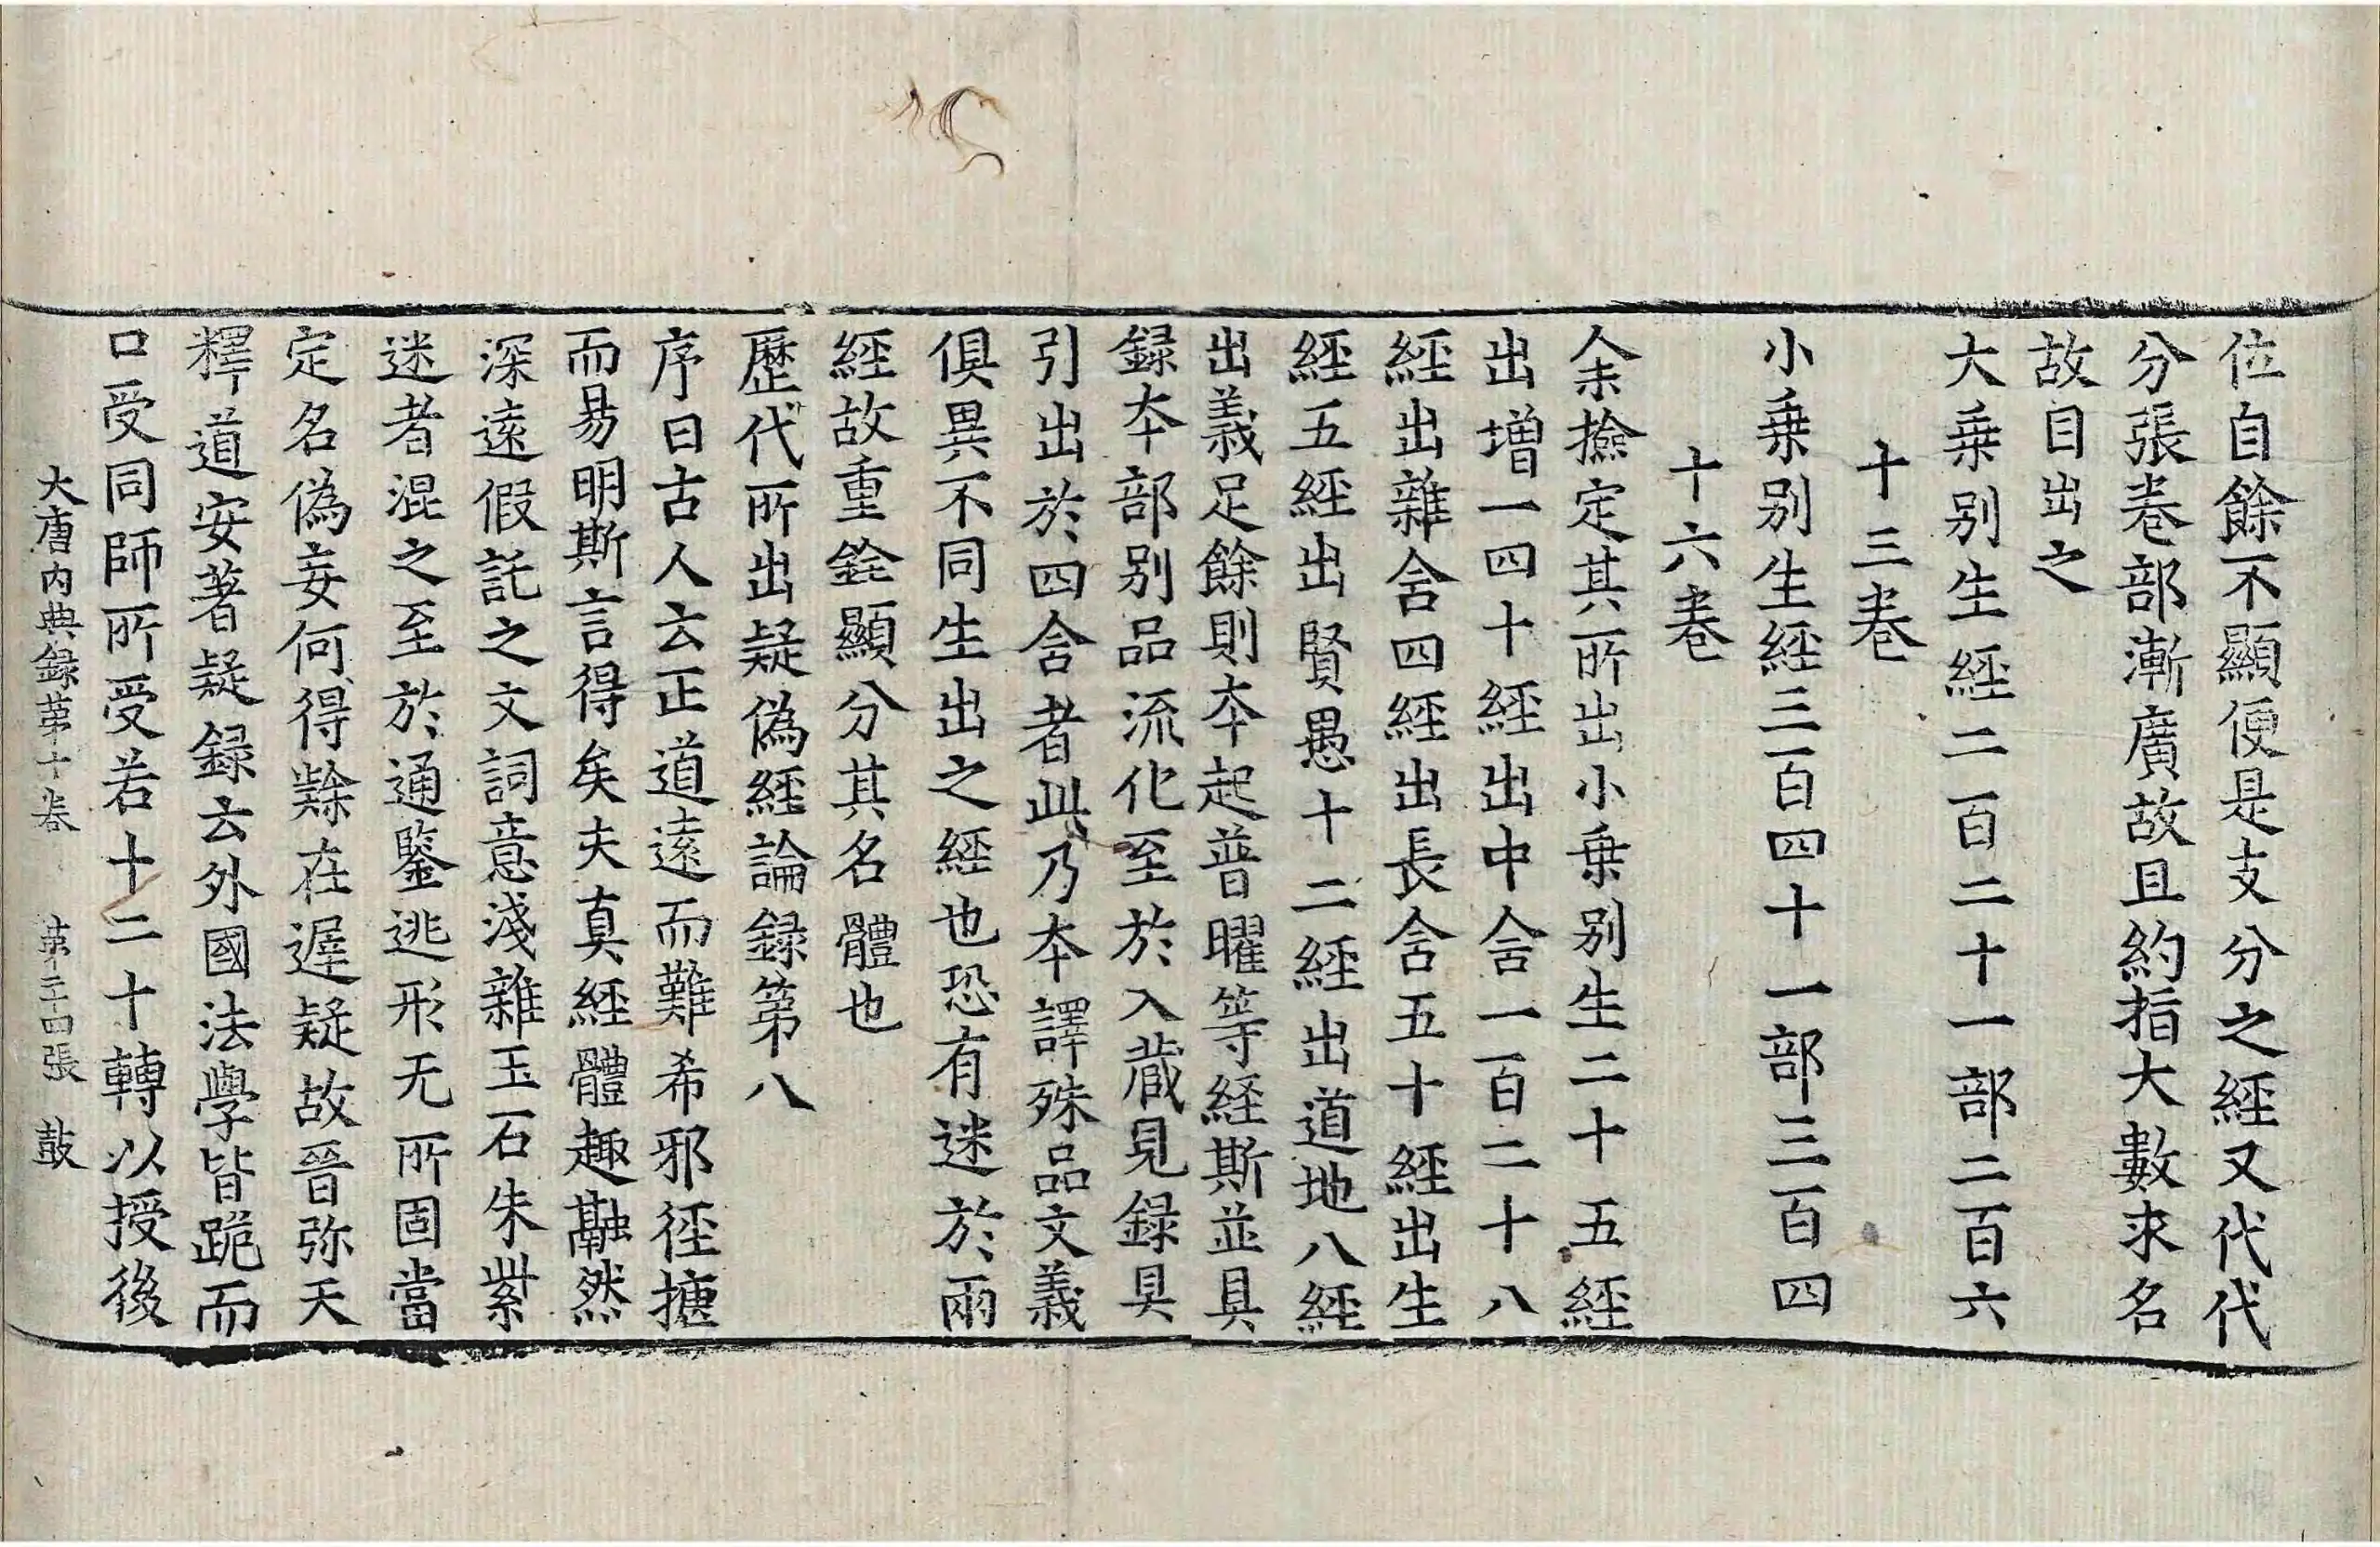 位自餘不顯便是支分之經又代代
分張卷部漸廣故且約指大數求名
故目出之
大乗别生經二百二十一部二百六
十三卷
小乗别生經三百四十一部三百四
十六卷
余撿定其所出小乗别生二十五經
出增一四十經出中含一百二十八
經出雜含四經出長含五十經出生
經五經出賢愚十二經出道地八經
出義足餘則夲起普曜等経斯並具
録夲部别品流化至於入蔵見録具
引出於四含者此乃夲譯殊品文義
俱異不同生出之經也恐有迷於兩
經故重銓顯分其名體也
歷代所出疑偽經論録第八
序曰古人云正道遠而難希邪徑捷
而易明斯言得矣夫真經體趣融然
深遠假託之文詞意淺雜玉石朱紫
迷者混之至於通鑒逃形无所固當
定名偽妄何得辤在遲疑故晉弥天
釋道安著疑録云外國法學皆跪而
口受同師所受若十二十轉以授後
大唐内典録第十卷 第二十四張 鼓